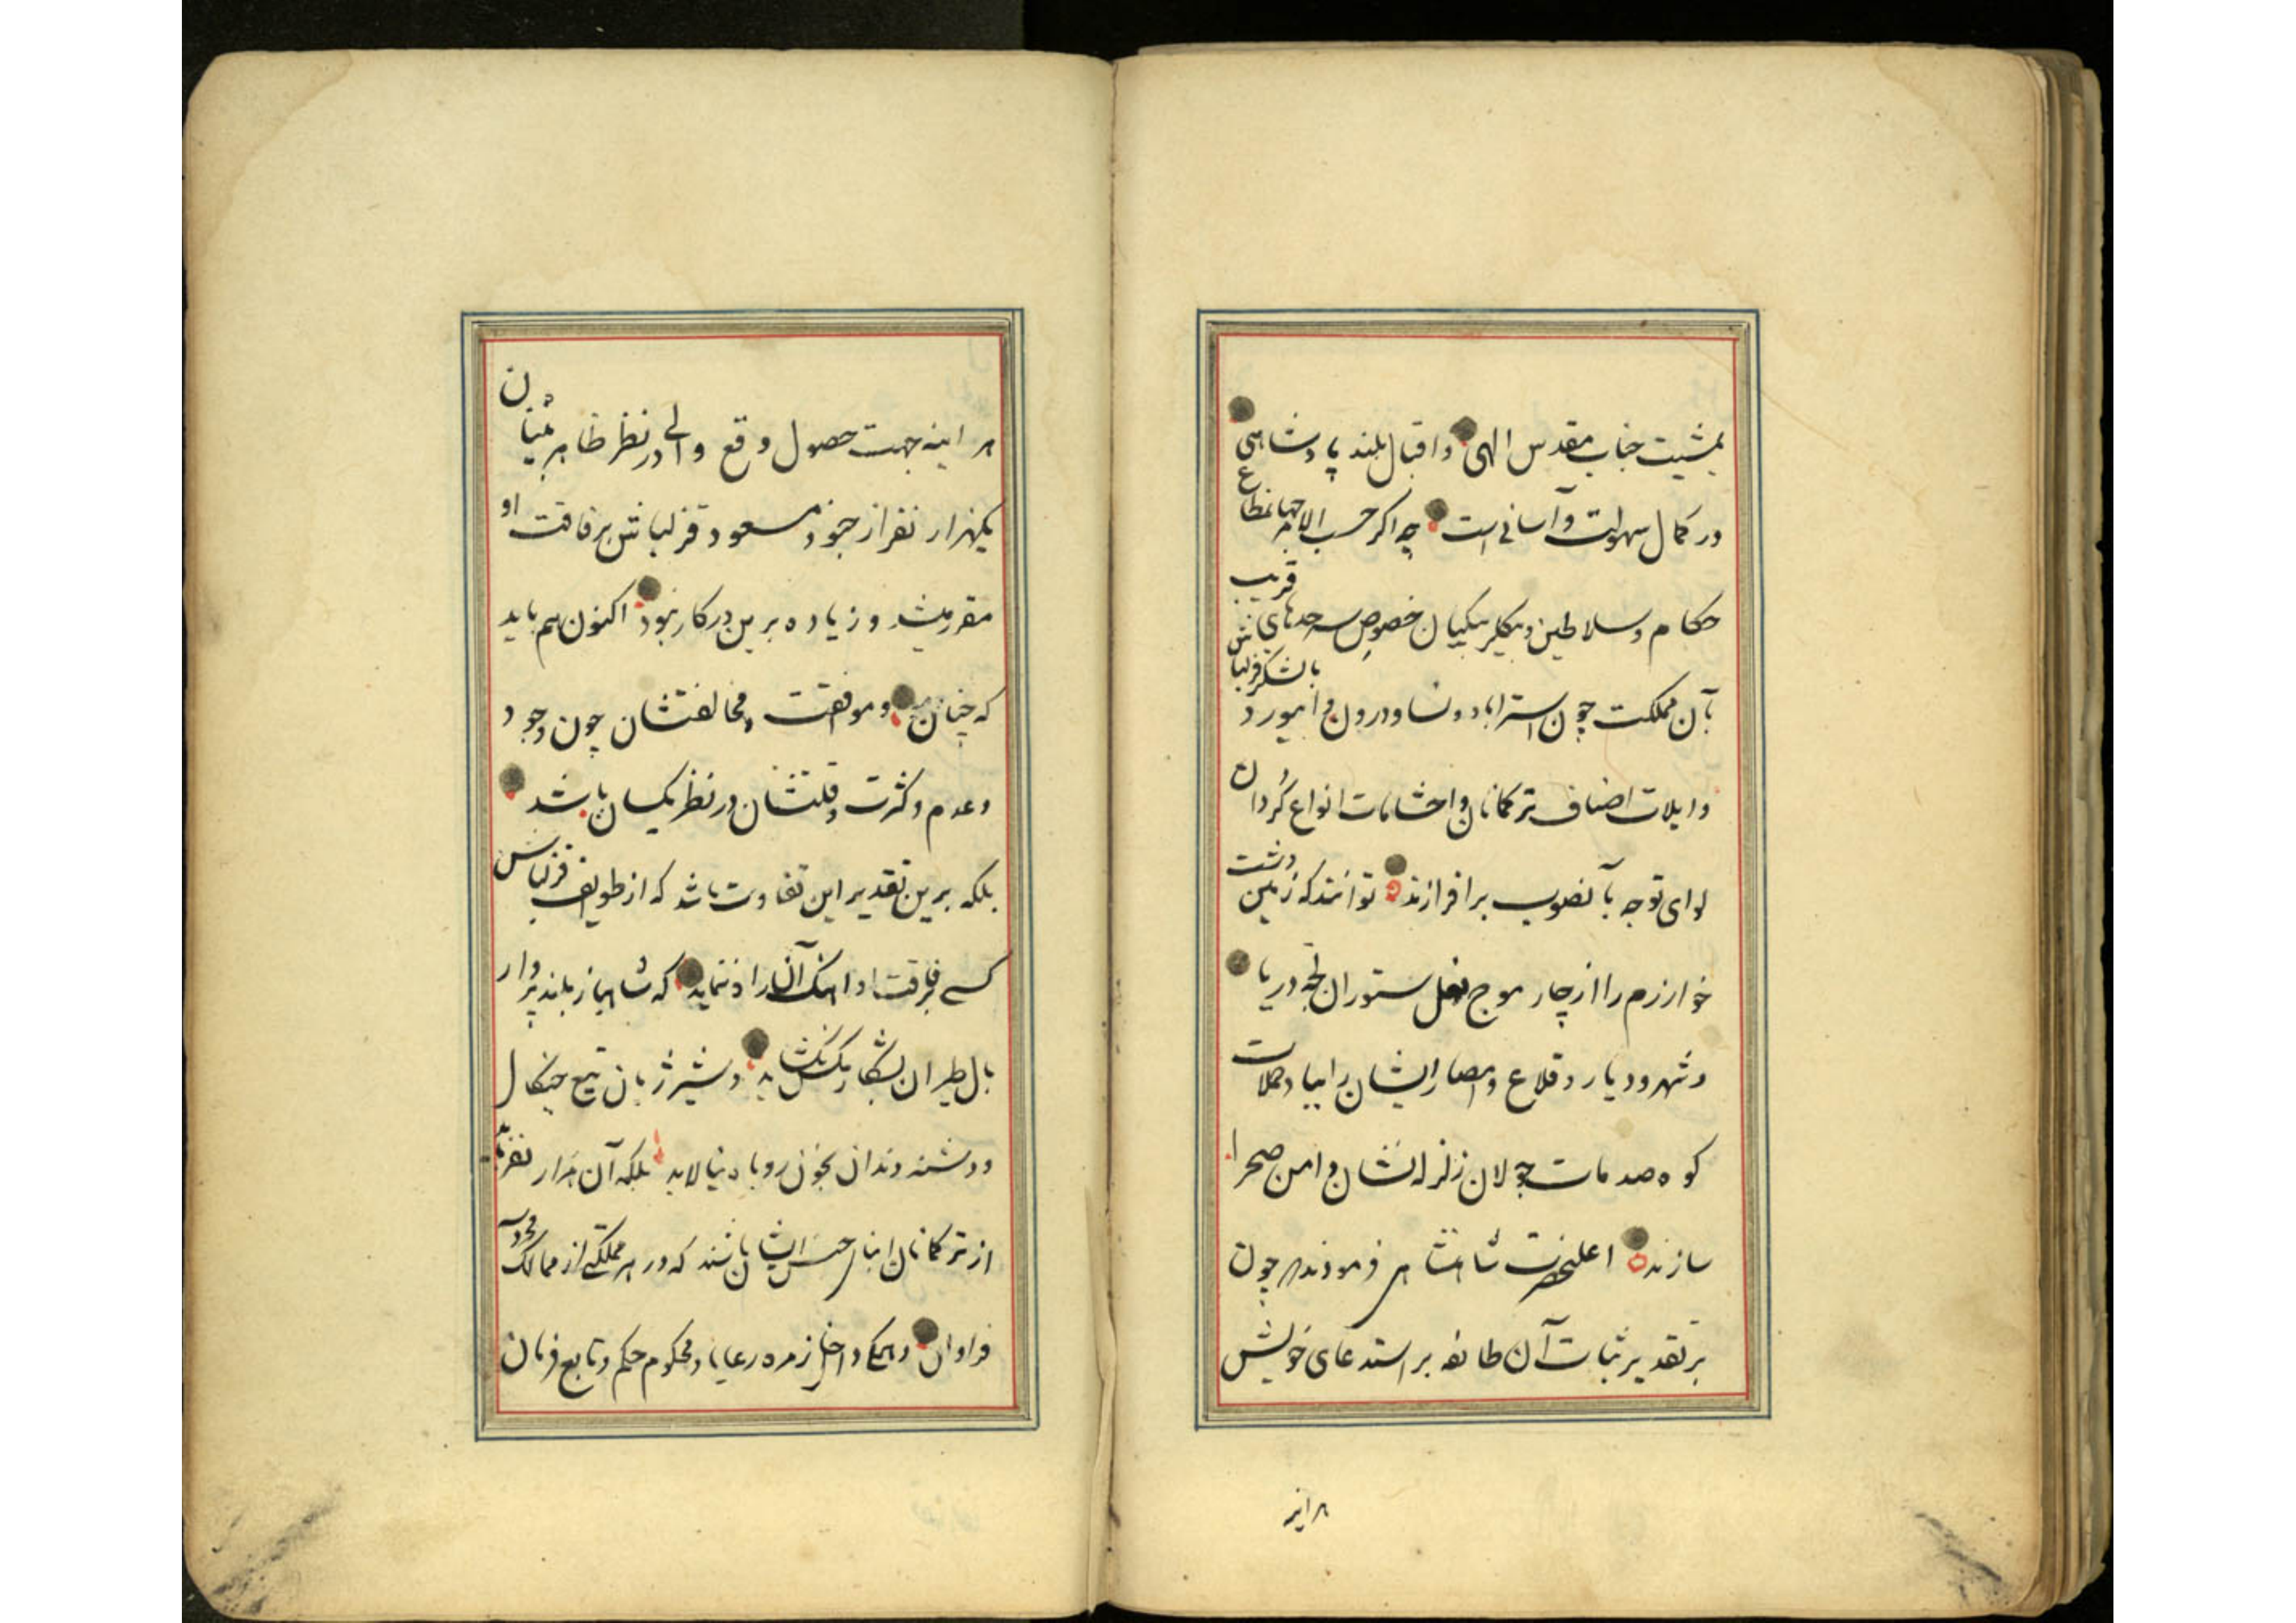 بمشیت جناب مقدس الهی و اقبال بلند پادشاهی
در کمال سهولت و آسانی است چه اکر حسب الامر جهانمطاع
حکام و سلاطین و بیکلربیکیان خصوص سرحدهای قریب
بآن مملکت چون استراباد و نسا و درون و ابیورد بالشکر قزلباش
و ایلات اصناف ترکمانان و احشامات انواع کردان
لوای توجه بآنصوب برافرازند توانند که زمین دشت
خوارزم را از چار موج نعل ستوران لجه دریا
و شهر و دیار و قلاع و امصار ایشان را بباد حملات
کوه صدمات جولان زلزله نشان دامن صحرا
سازند اعلیحضرت شاهنشاهی فرمودند چون
بر تقدیر ثبات آن طائفه بر استدعای خویش
هراینه
هراینه جهت حصول وقع والی در نظر ظاهربینان
یکهزار نفر از جنود مسعود قزلباش برفاقت او
مقرر میشد و زیاده برین در کار نبود اکنون هم باید
که چنان و موافقت و مخالفتشان چون وجود
و عدم و کثرت و قلتشان در نظر یکسان باشد
بلکه برین تقدیر این تفاوت باشد که از طوایف قزلباش
کسی برفاقت او اهنک آن را ننماید که شاهباز بلند پرواز
بال طیران بشکار کبک نکشاید و شیر ژیان تیغ چنکال
و دشنه دندان بخون روباه نیالاید بلکه آن هزار نفر باید
از ترکمانان ابنای جنس ایشان باشند که در هر مملکتی از ممالک محروسه
فراوان و همکی داخل زمره رعایا و محکوم حکم و تابع فرمان